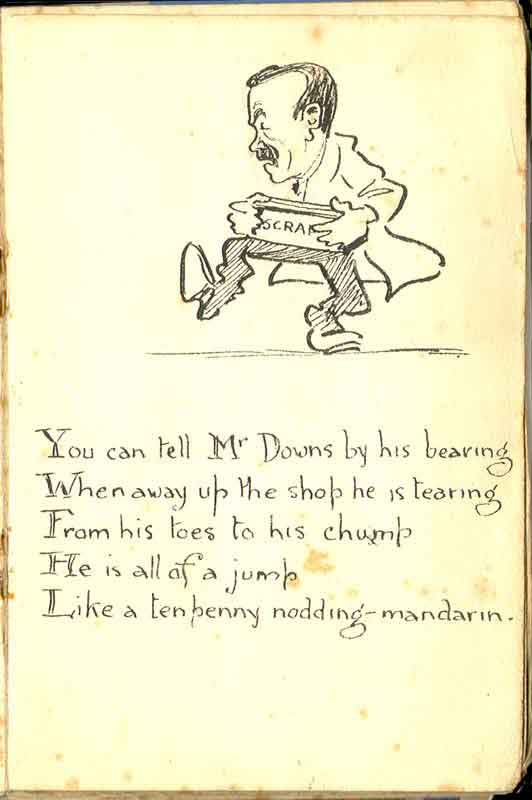 SCRAP
You can tell Mr Downs by his bearing
When away up the shop he is tearing
From his toes to his chump
He is all of a jump
Like a tenpenny nodding-mandarin.